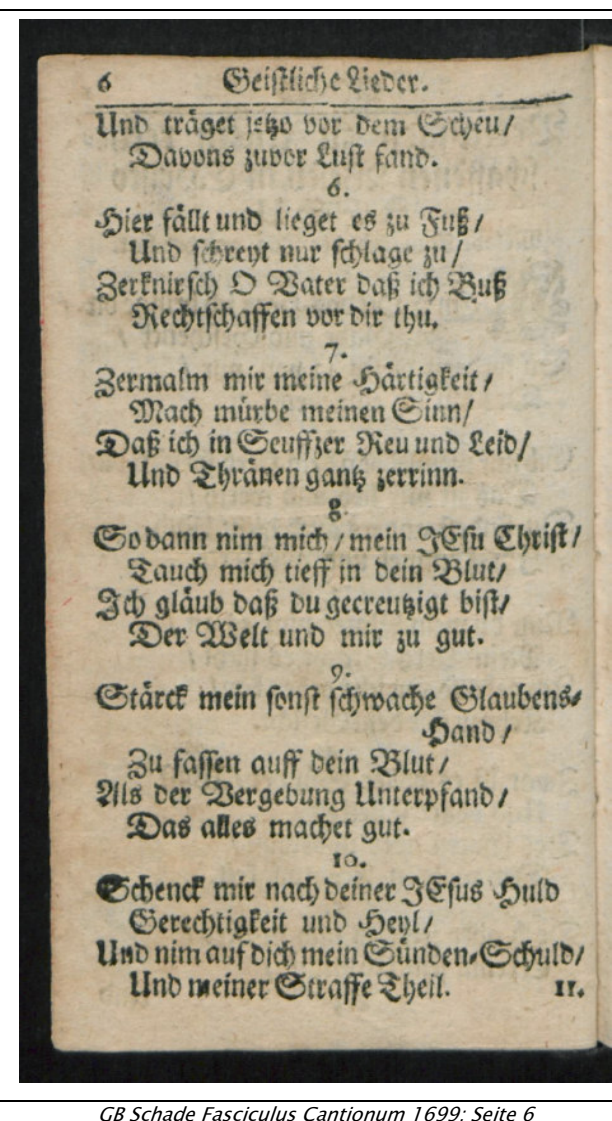 6 Geistliche Lieder.
Und träget jetzo vor dem Scheu/
Davons zuvor Lust fand.
6.
Hier fällt und lieget es zu Fuß/
Und schreyt nur schlage zu/
Zerknirsch O Vater daß ich Buß
Rechtschaffen vor dir thu.
7.
Zermalm mir meine Härtigkeit/
Mach mürbe meinen Sinn/
Daß ich in Seuffzer Reu und Leid/
Und Thränen gantz zerrinn.
8.
So dann nim mich/mein JEsu Christ/
Tauch mich tieff in dein Blut/
Ich gläub daß du gecreutzigt bist/
Der Welt und mir zu gut.
9.
Stärck mein sonst schwache Glaubens-
Hand/
Zu fassen auff dein Blut/
Als der Vergebung Unterpfand/
Das alles machet gut.
10.
Schenck mir nach deiner JEsus Huld
Gerechtigkeit und Heyl/
Und nim auf dich mein Sünden-Schuld/
Und meiner Straffe Theil. 11.
GB Schade Fasciculus Cantionum 1699: Seite 6